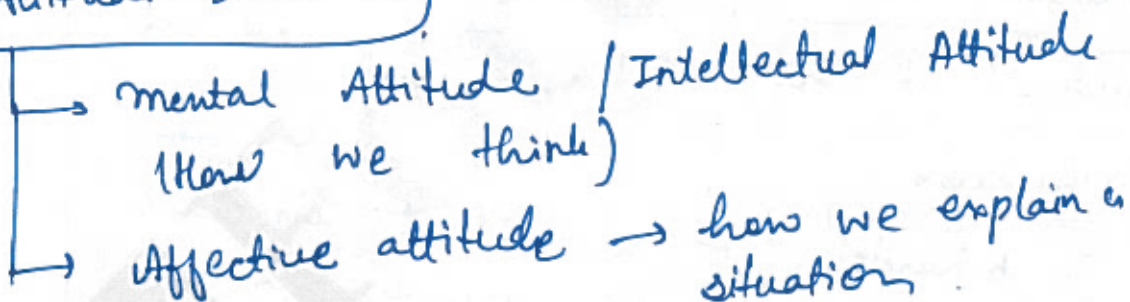 → Mental Attitude / Intellectual Attitude
(How we think)
→ Affective attitude → how we explain a
situation